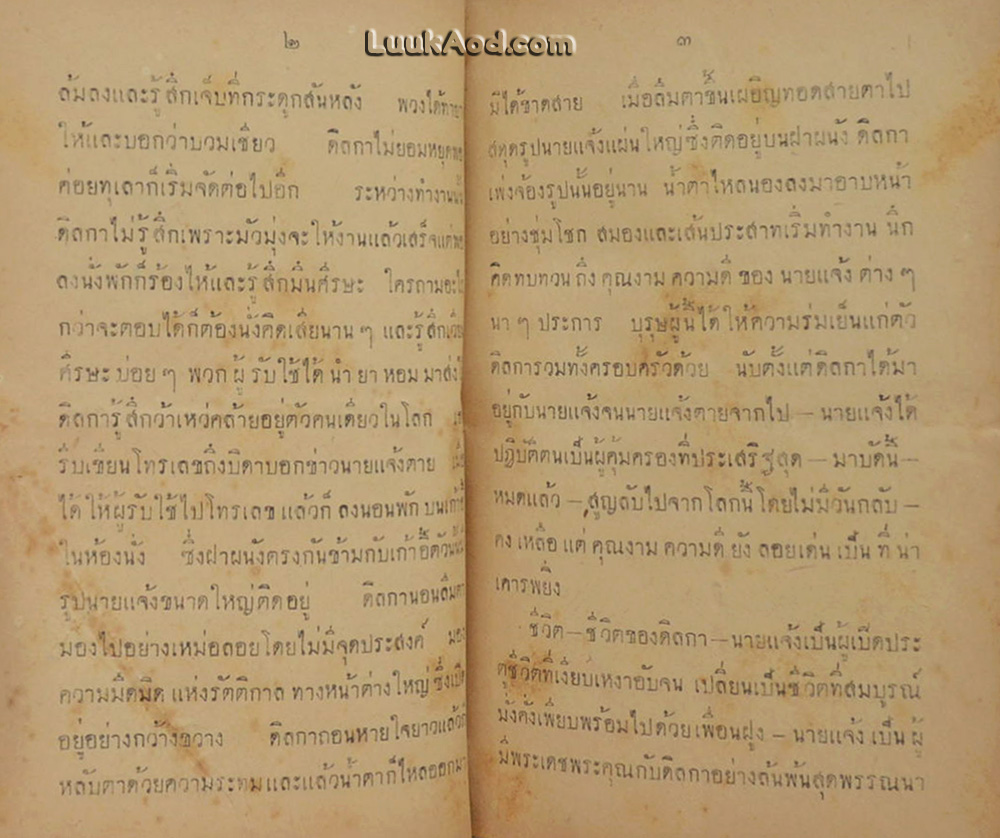 ๒
ล้มลงและรู้สึกเจ็บที่กระดูกสันหลัง พวงได้ทายา
ให้และบอกว่าบวมเชียว ดิลกาไม่ยอมหยุดพอ
ค่อยทุเลาก็เริ่มจัดต่อไปอีก ระหว่างทำงาน
ดิลกาไม่รู้สึกเพราะมัวมุ่งจะให้งานแล้วเสร็จแต่พอ
ลงนั่งพักก็ร้องไห้และรู้สึกมึนศีรษะ ใครถามอะไร
กว่าจะตอบได้ก็ต้องนั่งคิดเสียนาน ๆ และรู้สึก
ศีรษะบ่อย ๆ พวกผู้รับใช้ได้นำยาหอมมาส่ง
ดิลการู้สึกว้าเหว่คล้ายอยู่ตัวคนเดียวในโลก
รีบเขียนโทรเลขถึงบิดาบอกข่าวนายแจ้งตาย เมื่อ
ได้ให้ผู้รับใช้ไปโทรเลขแล้วก็ลงนอนพักบนเก้าอี้
ในห้องนั่ง ซึ่งฝาผนังตรงกันข้ามกับเก้าอี้ตัวนั้นมี
รูปนายแจ้งขนาดใหญ่ติดอยู่ ดิลกานอนลืมตา
มองไปอย่างเหม่อลอยโดยไม่มีจุดประสงค์ มอง
ความมืดมิดแห่งรัตติกาลทางหน้าต่างใหญ่ซึ่งเปิด
อยู่อย่างกว้างขวาง ดิลกาถอนหายใจยาวแล้วก็
หลับตาด้วยความระทมและแล้วน้ำตาก็ไหลออกมา
LuukAod.com
๓
มิได้ขาดสาย เมื่อลืมตาขึ้นเผอิญทอดสายตาไป
สดุดรูปนายแจ้งแผ่นใหญ่ซึ่งติดอยู่บนฝาผนัง ดิลกา
เพ่งจ้องรูปนั้นอยู่นาน น้ำตาไหลนองลงมาอาบหน้า
อย่างชุ่มโชก สมองและเส้นประสาทเริ่มทำงาน นึก
คิดทบทวนถึงคุณงามความดีของนายแจ้งต่าง ๆ
นา ๆ ประการ บุรุษผู้นี้ได้ให้ความร่มเย็นแก่ตัว
ดิลการวมทั้งครอบครัวด้วย นับตั้งแต่ดิลกาได้มา
อยู่กับนายแจ้งจนนายแจ้งตายจากไป – นายแจ้งได้
ปฏิบัติตนเป็นผู้คุ้มครองที่ประเสริฐสุด – มาบัดนี้ –
หมดแล้ว – สูญลับไปจากโลกนี้โดยไม่มีวันกลับ –
คงเหลือแต่คุณงามความดียังลอยเด่นเป็นที่น่า
เคารพยิ่ง
ชีวิต – ชีวิตของดิลกา – นายแจ้งเป็นผู้เบิดประ
ตูชีวิตที่เงียบเหงาอับจน เปลี่ยนเป็นชีวิตที่สมบูรณ์
มั่งคั่งเพียบพร้อมไปด้วยเพื่อนฝูง – นายแจ้งเป็นผู้
มีพระเดชพระคุณกับดิลกาอย่างล้นพ้นสุดพรรณนา